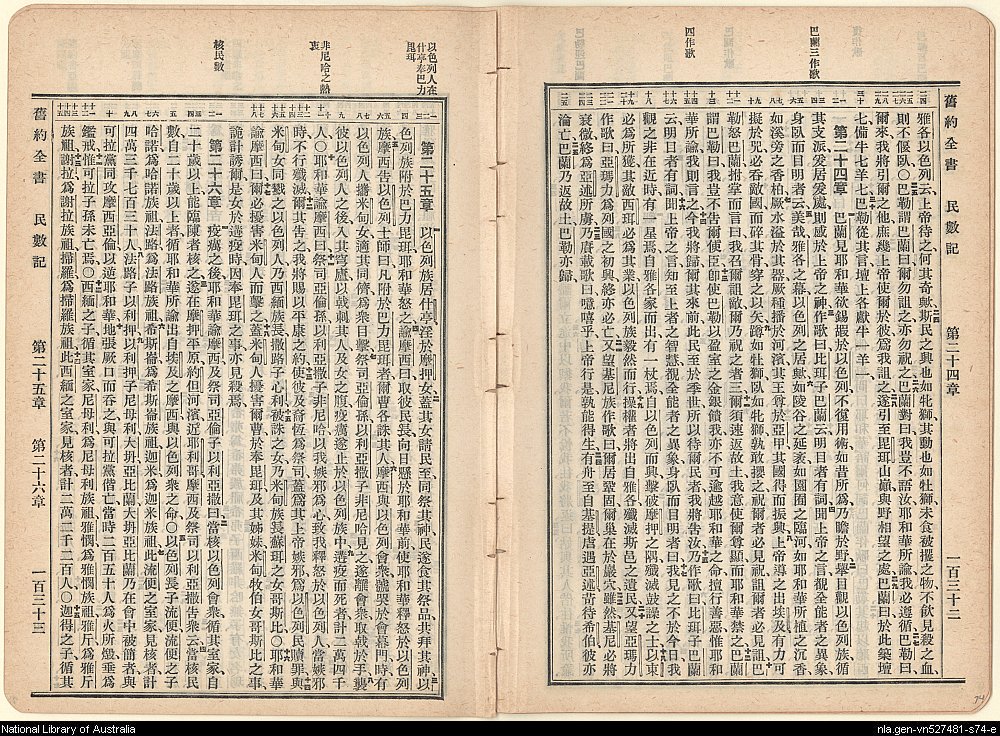 舊約全書 民數記 第二十四章 一百三十二
巴蘭三作歌
四作歌
雅各以色列云上帝待之何其奇歟斯民之興也如牝獅其動也如牡獅未食被攫之物不飲見殺之血
則不偃臥○巴勒謂巴蘭曰爾勿詛之亦勿祝之巴蘭對曰我豈不語汝耶和華所諭我必遵循巴勒曰
來我將引爾之他庶幾上帝悅爾於彼爲我詛之遂引至毘珥山巔與野相望之處巴蘭曰於此築壇
七備牛七羊七巴勒從其言壇上各獻牛一羊一
第二十四章 巴蘭見耶和華欲錫嘏於以色列不復用術如昔所爲乃瞻於野舉目觀以色列族循
其支派爰居爰處則感於上帝之神作歌曰比珥子巴蘭云明目者有詞聞上帝之言覩全能者之異象
身臥而目明者云美哉雅各之幕以色列族之居歟如陵谷之延袤如園囿之臨河如耶和華所植之沉香
如溪旁之香柏厥水溢於其器厥種播於河濱其王尊於亞甲其國得而振興上帝導之出埃及有力可
擬於兕必吞敵國而碎其骨穿之以矢蹲如牡獅臥如牝獅孰敢攖之祝爾者必見祝詛爾者必見詛巴
勒怒巴蘭拊掌而言曰我召爾詛敵爾乃祝之者三爾須速返故土我意使爾尊顯而耶和華禁之巴蘭
謂巴勒曰我豈不告爾使臣卽使巴勒以盈室之金銀饋我亦不可逾越耶和華之命擅行善惡惟耶和
華所諭我則言之今我將歸爾其來前此民至於季世所以待爾民者我將告汝乃作歌曰比珥子巴蘭
云明目者有詞聞上帝之言知至上者之智慧覩全能者之異象身臥而目明者曰我見之不於今日我
觀之非在近時有一星焉自雅各家而出有一杖焉自以色列而興擊破摩押之隅殲滅鼓譟之士以東
必爲所獲其敵西珥必爲其業以色列族毅然而行操權者將出自雅各殲滅斯邑之遺民又望亞瑪力
作歌曰亞瑪力爲列國之初興終亦必亡又望基尼族作歌曰爾居鞏固爾巢在於巖穴雖然基尼必將
衰微終爲亞述所虜乃賡載歌曰噫嘻乎上帝行是孰能得生有舟至自基提虐遇亞述苦待希伯彼亦
淪亡巴蘭乃返故土巴勒亦歸
以色列人在什亭奉巴力毘珥
非尼哈之熱衷
核民數
第二十五章 以色列族居什亭淫於摩押女蓋其女請民至同祭其神民遂食其祭品共拜其神以
色列族附於巴力毘珥耶和華怒之諭摩西曰取彼民長向日懸於耶和華前使耶和華釋怒於以色列
族摩西告以色列士師曰凡附於巴力毘珥者爾曹各誅其人摩西與以色列會衆號哭於會幕門時有
以色列人攜米甸女適其同儕爲衆目擊祭司亞倫孫以利亞撒子非尼哈見之遂離會衆取戟於手襲
彼以色列人之後入其穹廬以戟刺其人及女之腹疫癘遂止於以色列族中遘疫而死者計二萬四千
人○耶和華諭摩西曰祭司亞倫孫以利亞撒子非尼哈以我嫉邪爲心致我釋怒於以色列人當嫉邪
時不行殲滅爾其告之曰我將賜以平康之約使彼及裔恆爲祭司蓋爲其上帝嫉邪爲以色列民贖罪與
米甸女同戮之以色列人乃西緬族長撒路子心利被誅之女乃米甸族長蘇珥之女哥斯比○耶和華
諭摩西曰爾必擾害米甸人而擊之蓋米甸人擾害爾曹於奉毘珥及其姊妹米甸牧伯女哥斯比之事
詭計誘爾是女於遘疫時因奉毘珥之事亦見殺焉
第二十六章 疫癘之後耶和華諭摩西及祭司亞倫子以利亞撒曰當核以色列會衆循其室家自
二十歲以上能臨陳者核之遂在摩押平原約但河濱近耶利哥摩西及祭司以利亞撒告衆云當核民
數自二十歲以上者循耶和華所諭出自埃及之摩西與以色列衆之命○以色列長子流便流便之子
哈諾爲哈諾族祖法路爲法路族祖希斯崙爲希斯崙族祖迦米爲迦米族祖此流便之室家見核者計
四萬三千七百三十人法路子以利押以利押子尼母利大坍亞比蘭大坍亞比蘭乃在會中被簡者與
可拉黨同攻摩西亞倫以逆耶和華地張厥口而吞之與可拉黨偕亡當時二百五十人爲火所燬垂爲
鑑戒惟可拉子孫未亡焉○西緬之子循其室家尼母利爲尼母利族祖雅憫爲雅憫族祖雅斤爲雅斤
族祖謝拉爲謝拉族祖掃羅爲掃羅族祖此西緬之室家見核者計二萬二千二百人○迦得之子循其
舊約全書 民數記 第二十五章 第二十六章 一百三十三
National Library of Australia
nla.gen-vn527481-s74-e